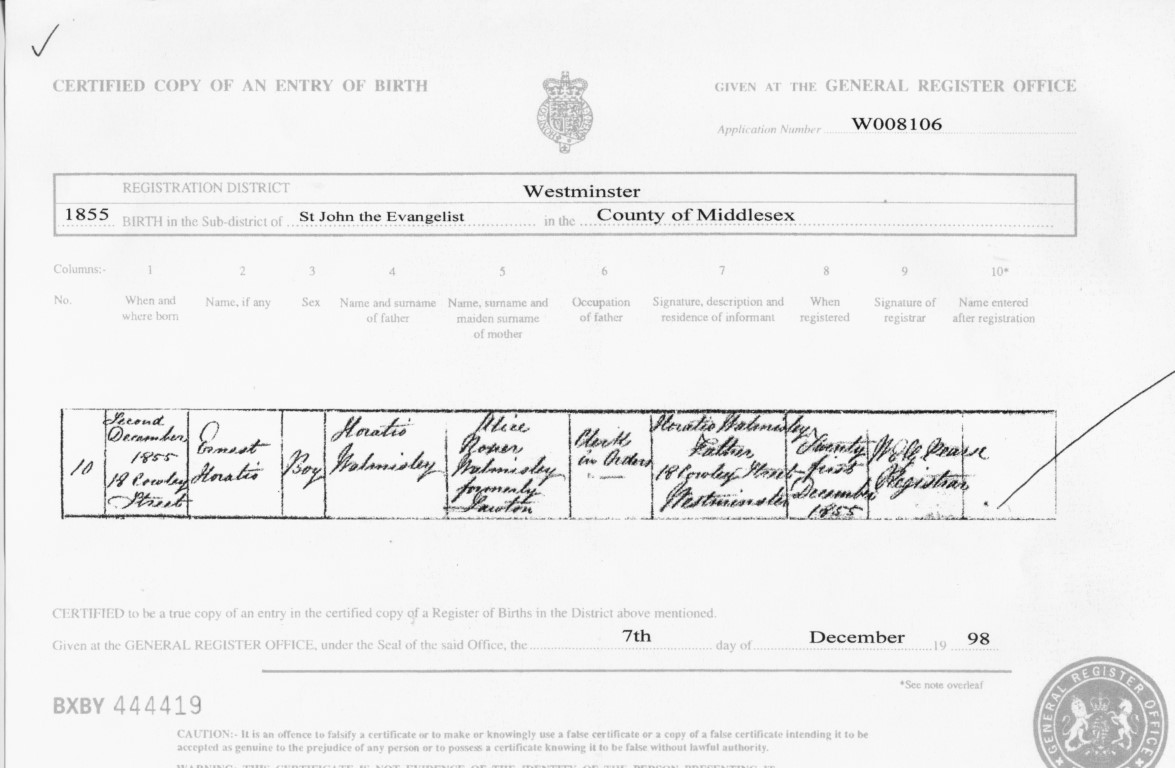 CERTIFIED COPY OF AN ENTRY OF BIRTH
GIVEN AT THE GENERAL REGISTER OFFICE
Application Number W008106
REGISTRATION DISTRICT Westminster
1855 BIRTH in the Sub-district of St John the Evangelist in the County of Middlesex
Columns:- 1 2 3 4 5 6 7 8 9 10*
No.
When and
where born
Name, if any
Sex
Name and surname
of father
Name, surname and
maiden surname
of mother
Occupation
of father
Signature, description and
residence of informant
When
registered
Signature of
registrar
Name entered
after registration
10
Second
December
1855
18 Cowley
Street
Ernest
Horatio
Boy
Horatio
Walmisley
Alice
Walmisley
formerly
Lawton
Clerk
in Orders
Horatio Walmisley
Father
18 Cowley Street
Westminster
Twenty
first
December
1855
Registrar
CERTIFIED to be a true copy of an entry in the certified copy of a Register of Births in the District above mentioned.
Given at the GENERAL REGISTER OFFICE, under the Seal of the said Office, the 7th day of December 19 98
*See note overleaf
BXBY 444419
GENERAL REGISTER OFFICE
CAUTION:- It is an offence to falsify a certificate or to make or knowingly use a false certificate or a copy of a false certificate intending it to be
accepted as genuine to the prejudice of any person or to possess a certificate knowing it to be false without lawful authority.
WARNING: THIS CERTIFICATE IS NOT EVIDENCE OF THE IDENTITY OF THE PERSON PRESENTING IT